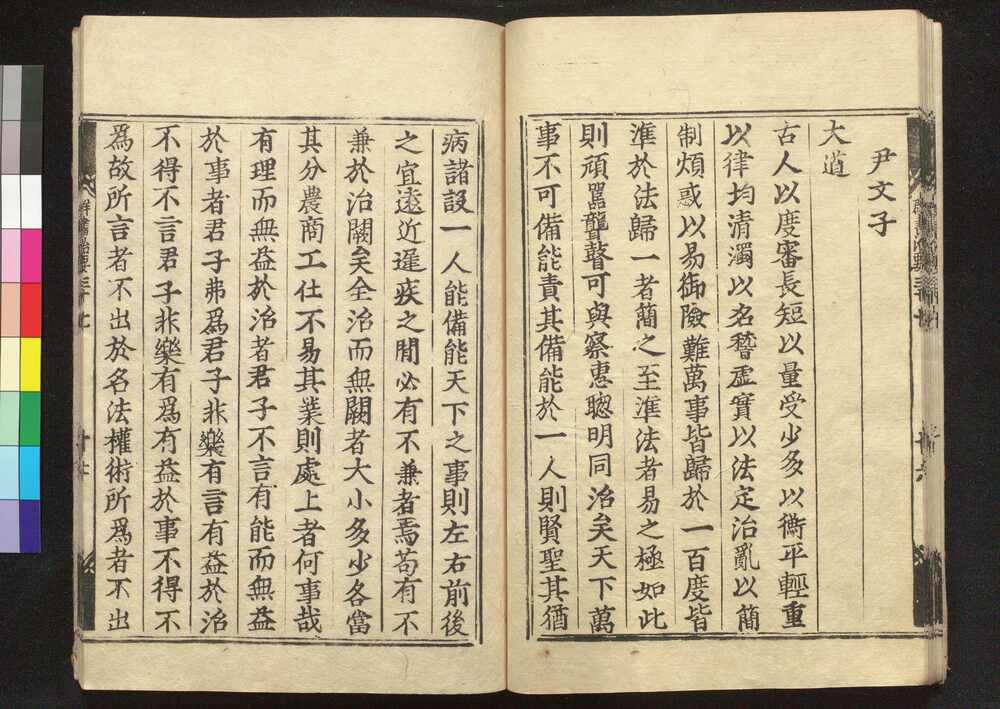 尹文子
大道
古人以度審長短以量受少多以衡平輕重
以律均清濁以名稽虛實以法定治亂以簡
制煩惑以易御險難萬事皆歸於一百度皆
準於法歸一者簡之至準法者易之極如此
則頑嚚聾瞽可與察惠聰明同治矣天下萬
事不可備能責其備能於一人則賢聖其猶
病諸設一人能備能天下之事則左右前後
之宜遠近遲疾之閒必有不兼者焉苟有不
兼於治闕矣全治而無闕者大小多少各當
其分農商工仕不易其業則處上者何事哉
有理而無益於治者君子不言有能而無益
於事者君子弗爲君子非樂有言有益於治
不得不言君子非樂有爲有益於事不得不
爲故所言者不出於名法權術所爲者不出
群書治要三十七
十七